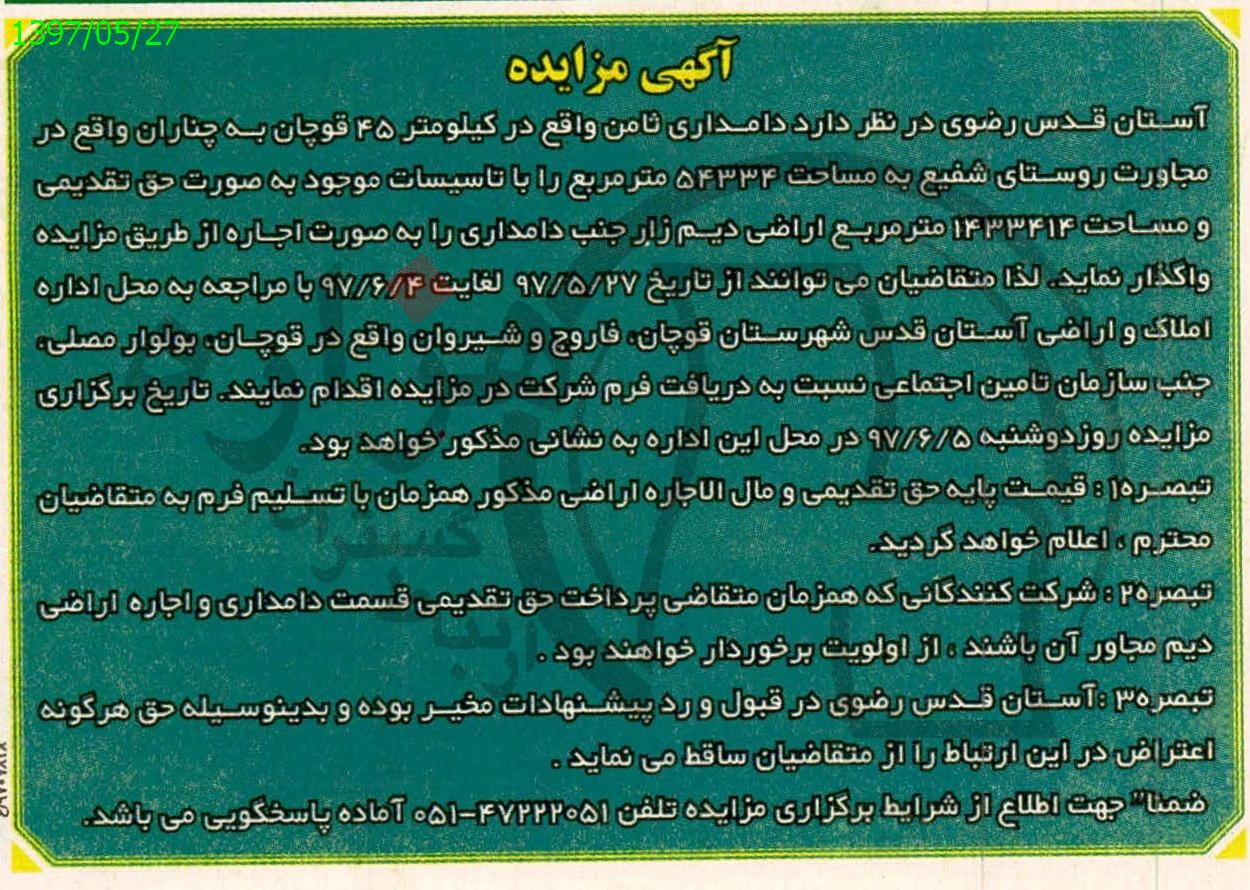 1397/05/27
آگهی مزایده
آستان قدس رضوی در نظر دارد دامداری ثامن واقع در کیلومتر ۴۵ قوچان به چناران واقع در
مجاورت روستای شفیع به مساحت ۵۴۳۳۴ مترمربع را با تاسیسات موجود به صورت حق تقدیمی
و مساحت ۱۴۳۳۴۱۴ مترمربع اراضی دیم زار جنب دامداری را به صورت اجاره از طریق مزایده
واگذار نماید. لذا متقاضیان می توانند از تاریخ ۹۷/۵/۲۷ لغایت ۹۷/۶/۴ با مراجعه به محل اداره
املاک و اراضی آستان قدس شهرستان قوچان، فاروج و شیروان واقع در قوچان، بولوار مصلی،
جنب سازمان تامین اجتماعی نسبت به دریافت فرم شرکت در مزایده اقدام نمایند. تاریخ برگزاری
مزایده روز دوشنبه ۹۷/۶/۵ در محل این اداره به نشانی مذکور خواهد بود.
تبصره۱ : قیمت پایه حق تقدیمی و مال الاجاره اراضی مذکور همزمان با تسلیم فرم به متقاضیان
محترم ، اعلام خواهد گردید.
تبصره۲ : شرکت کنندگانی که همزمان متقاضی پرداخت حق تقدیمی قسمت دامداری و اجاره اراضی
دیم مجاور آن باشند ، از اولویت برخوردار خواهند بود .
تبصره۳ :آستان قدس رضوی در قبول و رد پیشنهادات مخیر بوده و بدینوسیله حق هرگونه
اعتراض در این ارتباط را از متقاضیان ساقط می نماید .
ضمنا" جهت اطلاع از شرایط برگزاری مزایده تلفن ۴۷۲۲۲۰۵۱-۰۵۱ آماده پاسخگویی می باشد.